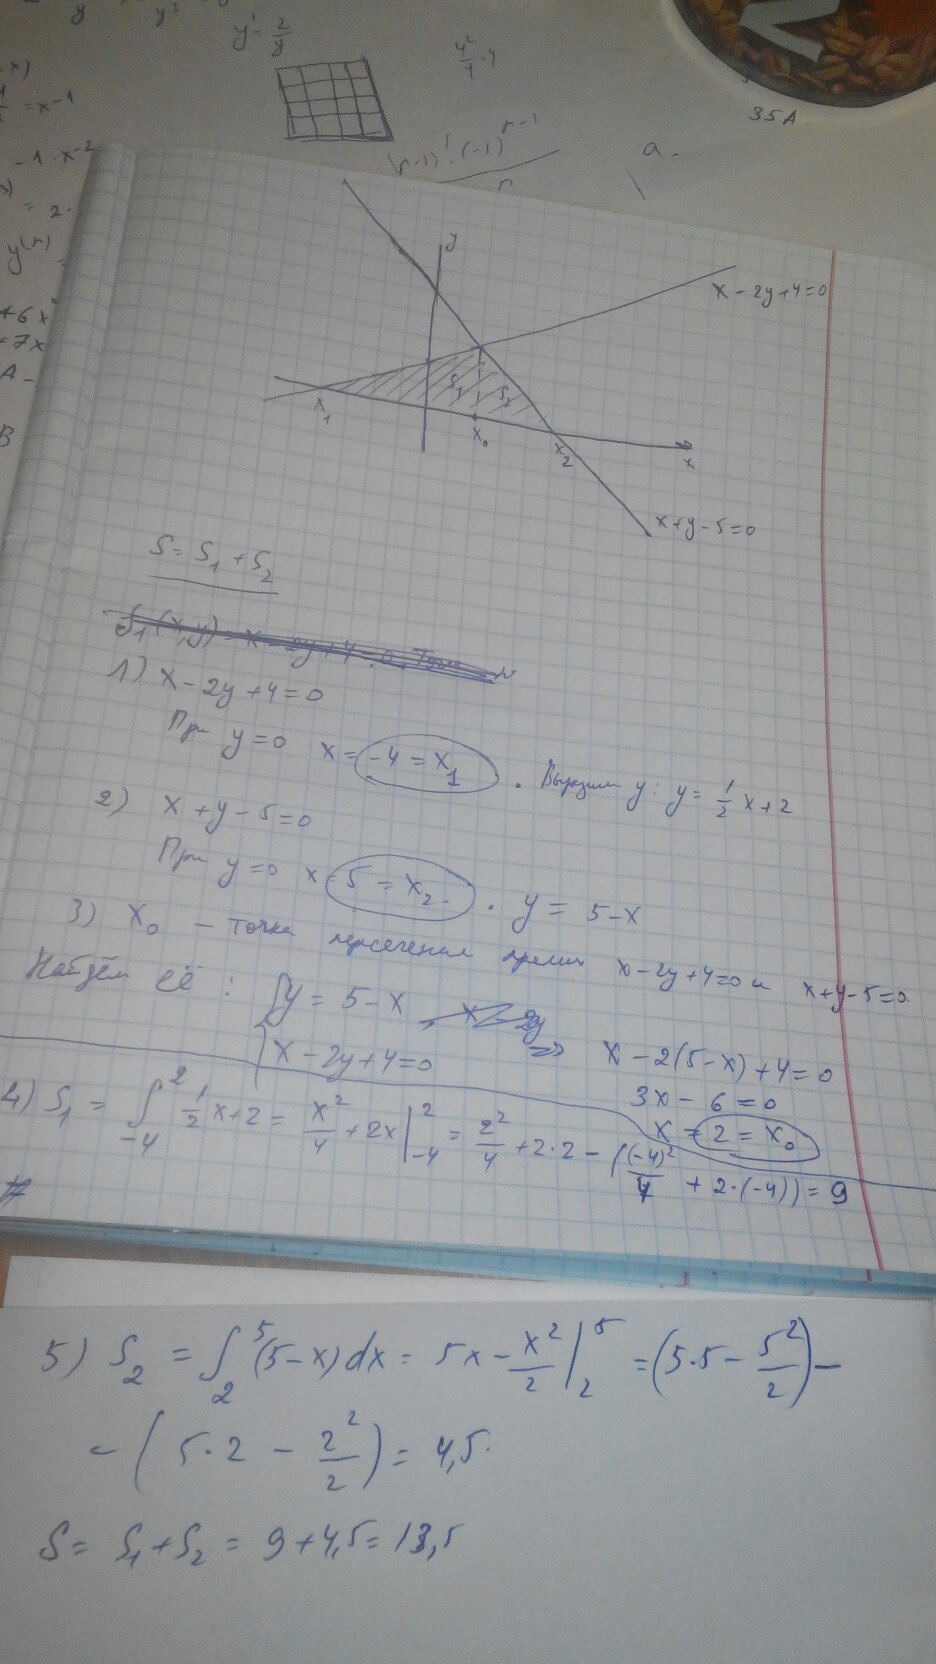 y' = 2/y
35A.
a.
y
x - 2y + 4 = 0
S₁ S₂
x₁ x₀ x₂ x
x + y - 5 = 0
S = S₁ + S₂
1) x - 2y + 4 = 0
При y = 0 x = -4 = x₁. Выразим y: y = 1/2 x + 2
2) x + y - 5 = 0
При y = 0 x = 5 = x₂. y = 5 - x
3) x₀ - точка пересечения прямых x - 2y + 4 = 0 и x + y - 5 = 0.
Найдём её: { y = 5 - x
x - 2y + 4 = 0 => x - 2(5 - x) + 4 = 0
3x - 6 = 0
x = 2 = x₀
4) S₁ = ∫₋₄² 1/2 x + 2 = x²/4 + 2x |₋₄² = 2²/4 + 2·2 - ((-4)²/4 + 2·(-4)) = 9
5) S₂ = ∫₂⁵ (5 - x) dx = 5x - x²/2 |₂⁵ = (5·5 - 5²/2) -
- (5·2 - 2²/2) = 4,5.
S = S₁ + S₂ = 9 + 4,5 = 13,5